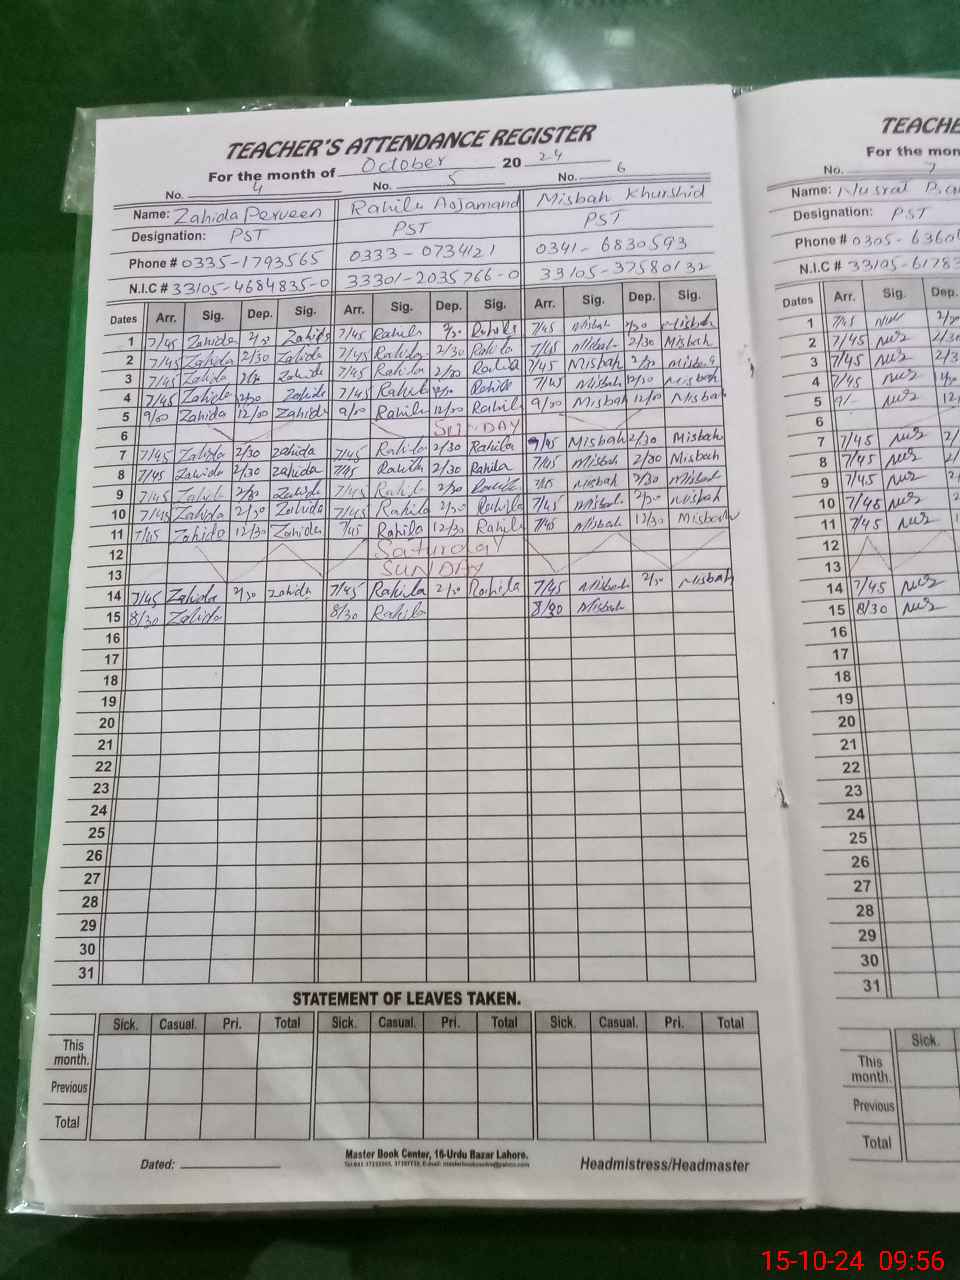 TEACHER'S ATTENDANCE REGISTER
For the month of October 20 24
No. 4 No. 5 No. 6
Name: Zahida Perveen Rahila Misbah Khurshid
Designation: PST PST PST
Phone # 0335-1793565 0333-0734121 0341-6830593
N.I.C # 33105-4684835-0 33301-2035766-0 33105-37580132
Dates Arr. Sig. Dep. Sig. Arr. Sig. Dep. Sig. Arr. Sig. Dep. Sig.
1 7/45 Zahida 2/30 Zahida 7/45 Rahila 2/30 Rahila 7/45 Misbah 2/30 Misbah
2 7/45 Zahida 2/30 Zahida 7/45 Rahila 2/30 Rahila 7/45 Misbah 2/30 Misbah
3 7/45 Zahida 2/30 Zahida 7/45 Rahila 2/30 Rahila 7/45 Misbah 2/30 Misbah
4 7/45 Zahida 12/30 Zahida 7/45 Rahila Rahila 7/45 Misbah 12/30 Misbah
5 9/00 Zahida 12/00 Zahida 9/00 Rahila 12/00 Rahila 9/30 Misbah 12/00 Misbah
6 SUNDAY
7 7/45 Zahida 2/30 Zahida 7/45 Rahila 2/30 Rahila 7/45 Misbah 2/30 Misbah
8 7/45 Zahida 2/30 Zahida 7/45 Rahila 2/30 Rahila 7/45 Misbah 2/30 Misbah
9 7/45 Zahida 2/30 Zahida 7/45 Rahila 2/30 Rahila 7/45 Misbah 2/30 Misbah
10 7/45 Zahida 2/30 Zahida 7/45 Rahila 2/30 Rahila 7/45 Misbah 2/30 Misbah
11 7/45 Zahida 12/30 Zahida 7/45 Rahila 12/30 Rahila 7/45 Misbah 12/30 Misbah
12 Saturday
13 SUNDAY
14 7/45 Zahida 2/30 Zahida 7/45 Rahila 2/30 Rahila 7/45 Misbah 2/30 Misbah
15 8/30 Zahida 8/30 Rahila 8/30 Misbah
16
17
18
19
20
21
22
23
24
25
26
27
28
29
30
31
STATEMENT OF LEAVES TAKEN.
Sick. Casual. Pri. Total Sick. Casual. Pri. Total Sick. Casual. Pri. Total
This month.
Previous
Total
Master Book Center, 16-Urdu Bazar Lahore.
Dated: Headmistress/Headmaster
TEACHE
For the mon
No. 7
Name: Nusrat
Designation: PST
Phone # 0305-6360
N.I.C # 33105-6178
Dates Arr. Sig. Dep.
1 7/45
2 7/45 Nus 2/30
3 7/45 Nus 2/3
4 7/45 Nus
5 9/- Nus 12
6
7 7/45 Nus 2/
8 7/45 Nus
9 7/45 Nus
10 7/45 Nus
11 7/45 Nus
12
13
14 7/45 Nus
15 8/30 Nus
16
17
18
19
20
21
22
23
24
25
26
27
28
29
30
31
Sick.
This month.
Previous
Total
15-10-24 09:56